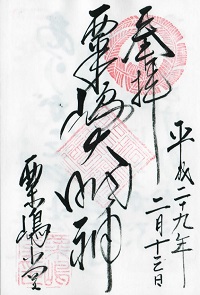 奉拝
平成二十九年
二月十三日
粟嶋大明神
粟嶋堂